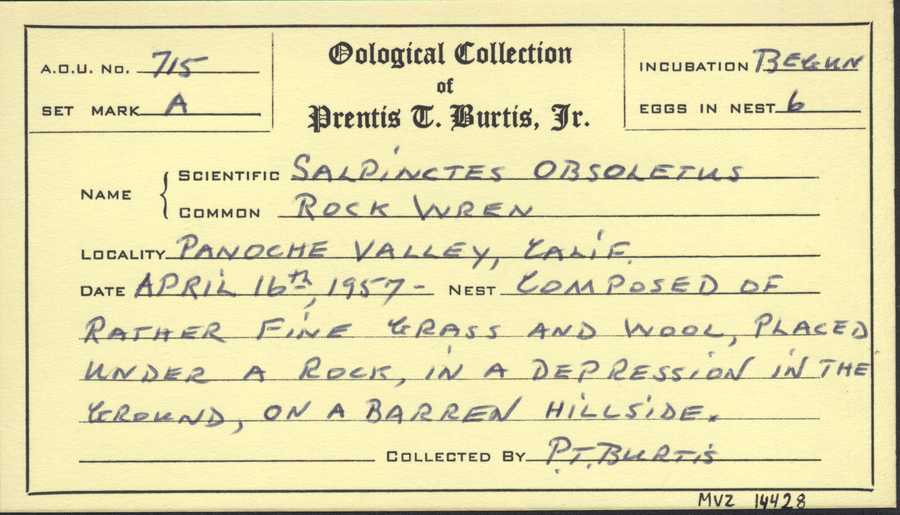 A.O.U. No. 715
SET MARK A
Oological Collection
of
Prentis T. Burtis, Jr.
INCUBATION BEGUN
EGGS IN NEST 6
NAME { SCIENTIFIC SALPINCTES OBSOLETUS
COMMON ROCK WREN
LOCALITY PANOCHE VALLEY, CALIF.
DATE APRIL 16th, 1957- NEST COMPOSED OF
RATHER FINE GRASS AND WOOL, PLACED
UNDER A ROCK, IN A DEPRESSION IN THE
GROUND, ON A BARREN HILLSIDE.
COLLECTED BY P.T. BURTIS
MVZ 14428